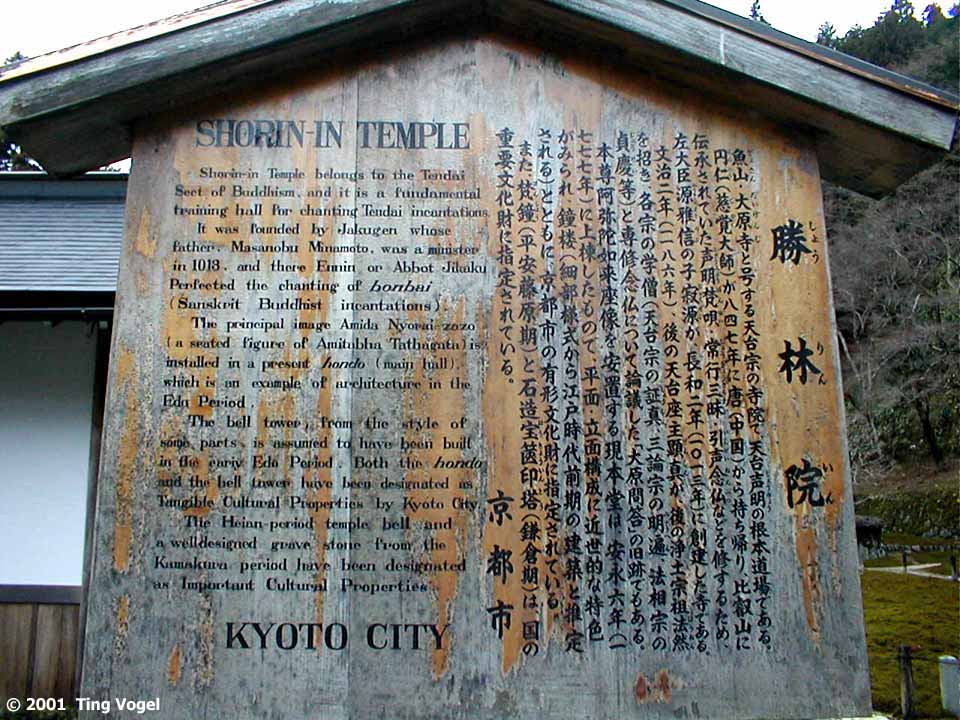 SHORIN-IN TEMPLE
Shorin-in Temple belongs to the Tendai
Sect of Buddhism, and it is a fundamental
training hall for chanting Tendai incantations.
It was founded by Jakugen whose
father, Masanobu Minamoto, was a minister
in 1013, and there Ennin or Abbot Jikaku
Perfected the chanting of bonbai
(Sanskrit Buddhist incantations).
The principal image Amida Nyorai zazo
(a seated figure of Amitabha Tathagata) is
installed in a present hondo (main hall),
which is an example of architecture in the
Edo Period.
The bell tower, from the style of
some parts, is assumed to have been built
in the early Edo Period. Both the hondo
and the bell tower have been designated as
Tangible Cultural Properties by Kyoto City.
The Heian-period temple bell and
a welldesigned grave stone from the
Kamakura period have been designated
as Important Cultural Properties.
KYOTO CITY
勝林院
しょうりんいん
魚山・大原寺と号する天台宗の寺院で天台声明の根本道場である。
円仁(慈覚大師)が八四七年に唐(中国)から持ち帰り、比叡山に
伝承されていた声明(梵唄・常行三昧・引声念仏などを修するため、
左大臣源雅信の子寂源が、長和二年(一〇一三年)に創建した寺である。
文治二年(一一八六年)、後の天台座主顕真が、後の浄土宗祖法然
を招き、各宗の学僧(天台宗の証真、三論宗の明遍、法相宗の
貞慶等)と専修念仏について論議した「大原問答」の旧跡でもある。
本尊阿弥陀如来座像を安置する現本堂は、安永六年(一
七七七年)に上棟したもので、平面・立面構成に近世的な特色
がみられ、鐘楼(細部様式から江戸時代前期の建築と推定
される)とともに、京都市の有形文化財に指定されている。
また、梵鐘(平安藤原期)と石造宝篋印塔(鎌倉期)は国の
重要文化財に指定されている。
京都市
© 2001 Ting Vogel